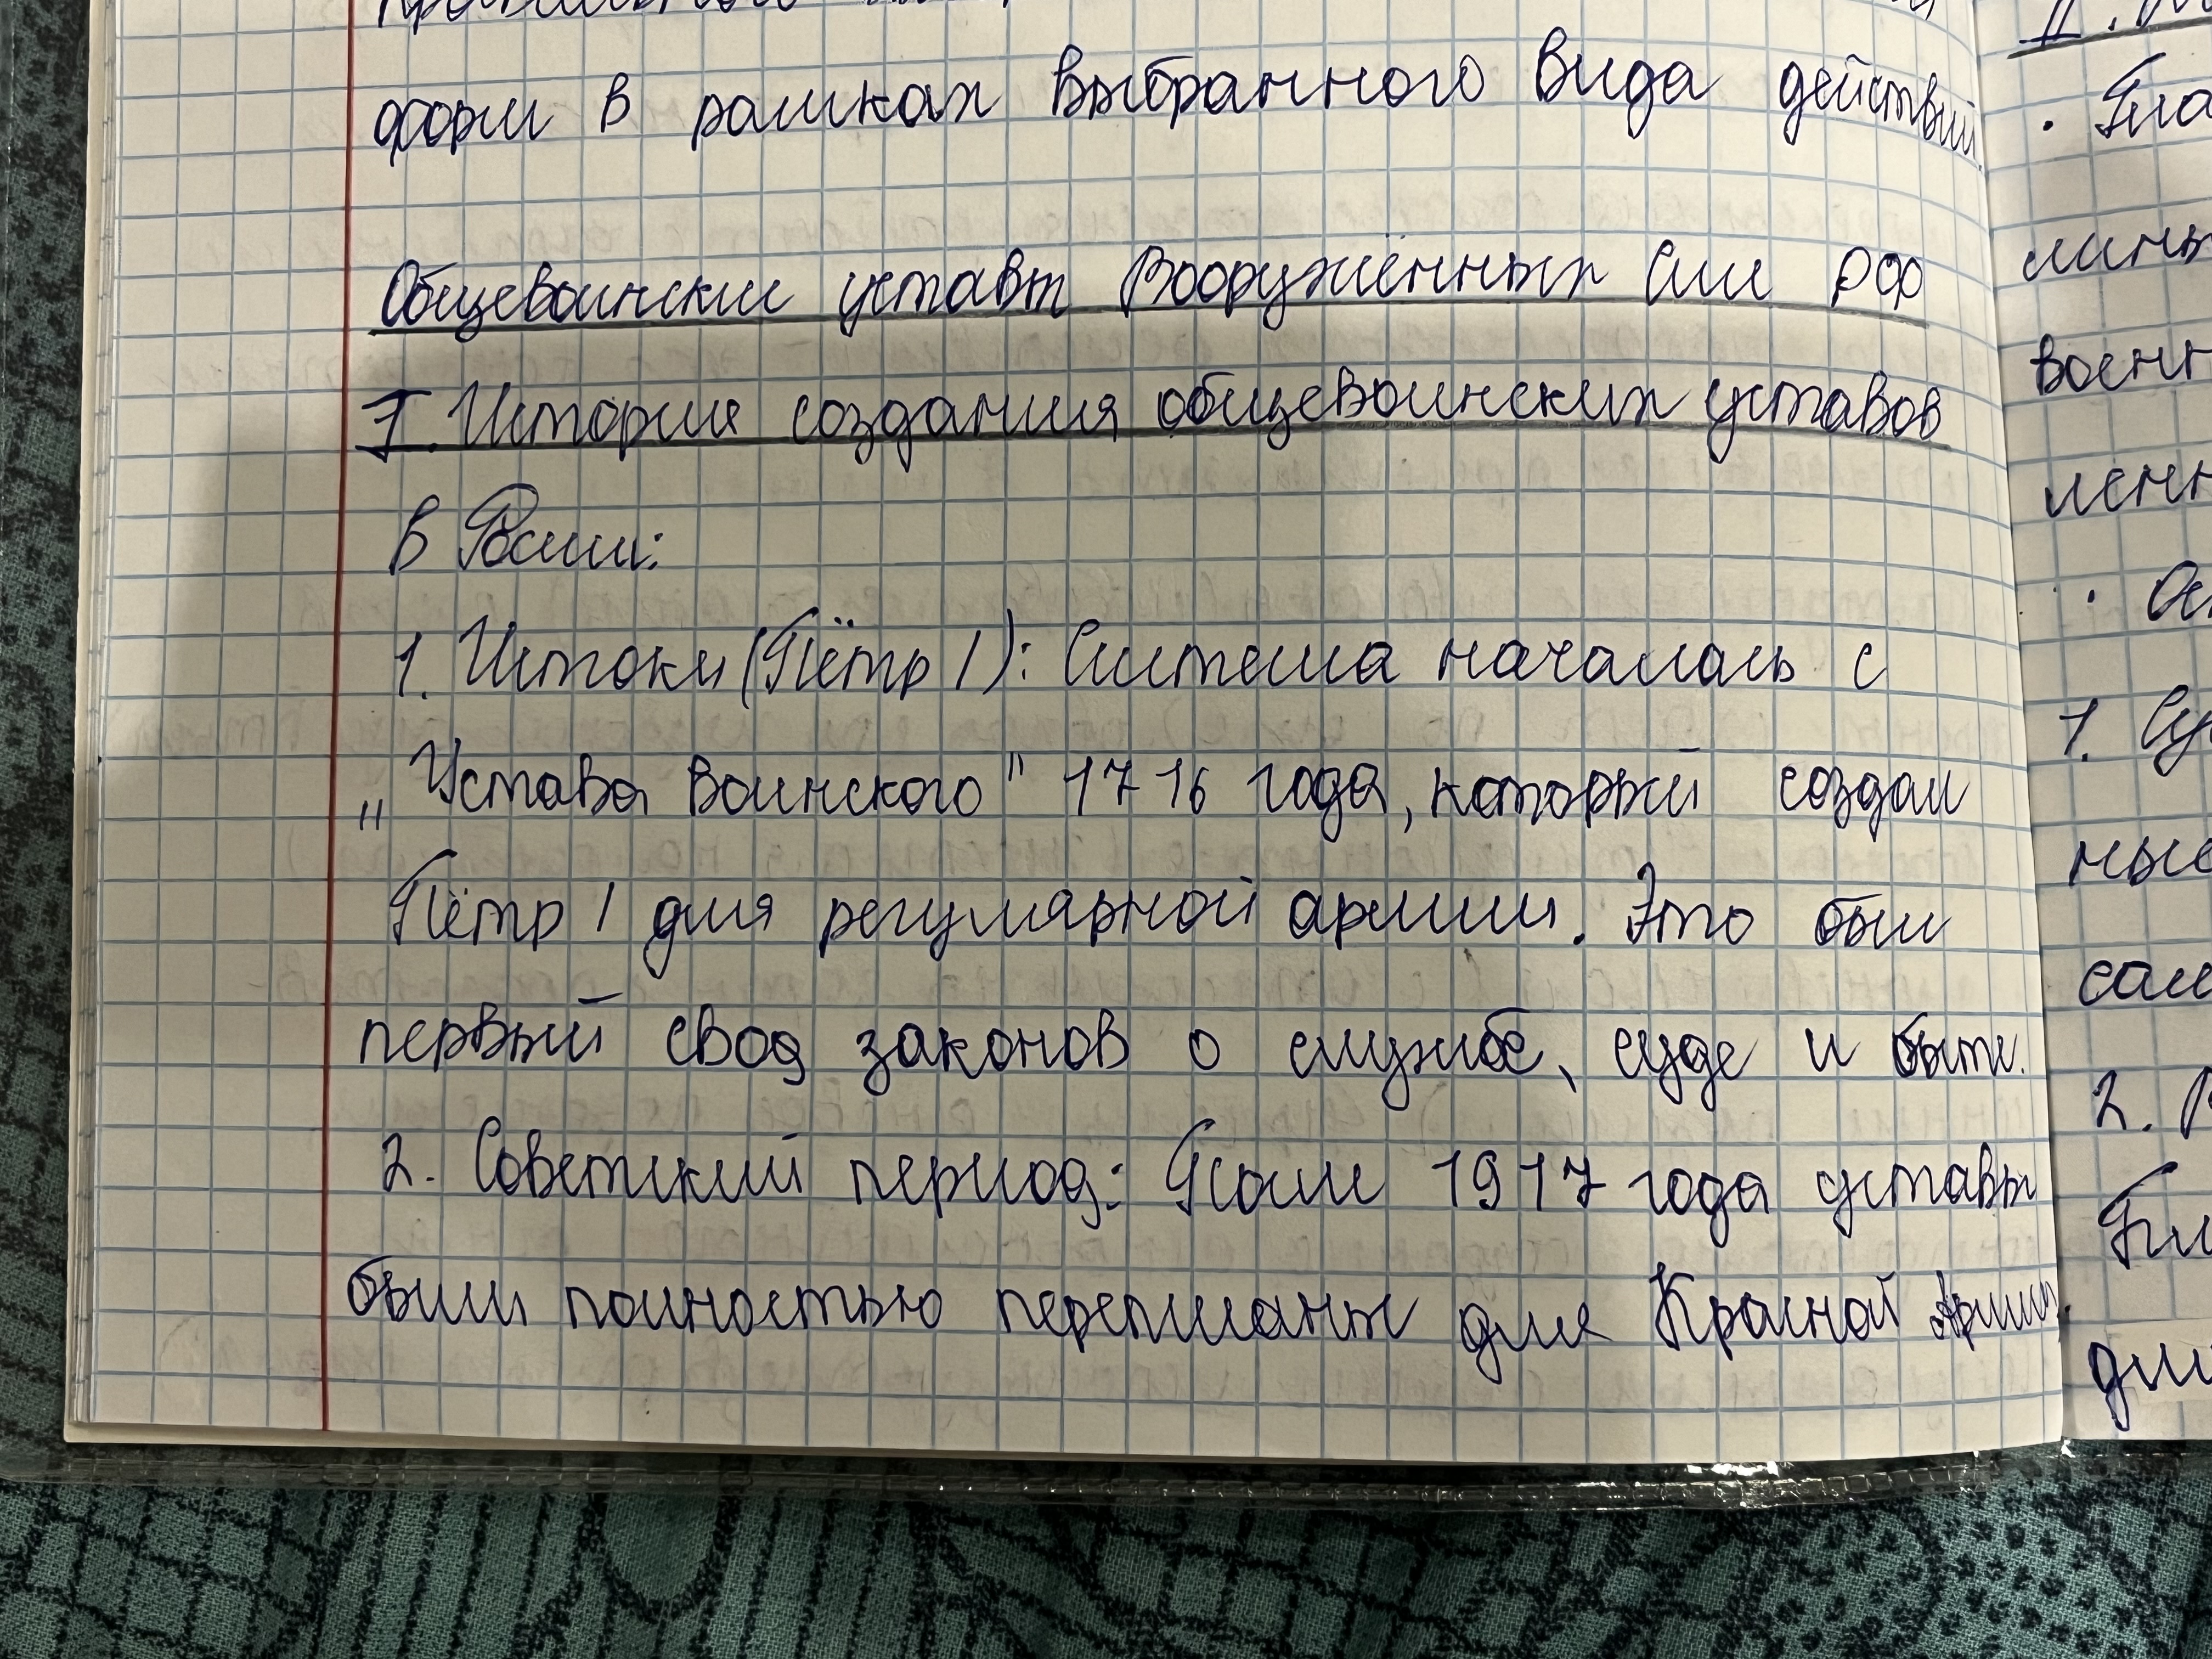 форм в рамках выбранного вида действий.
Общевоински уставы Вооружённых Сил РФ
I. История создания общевоинских уставов
в Росии:
1. Истоки (Пётр I): Система началась с
„Устава Воинского" 1716 года, который создал
Пётр I для регулярной армии. Это был
первый свод законов о службе, суде и быте.
2. Советский период: После 1917 года уставы
были полностью переписаны для Красной Армии.
II.
лины
военн
ленн
1. Су
ные
сам
2. В